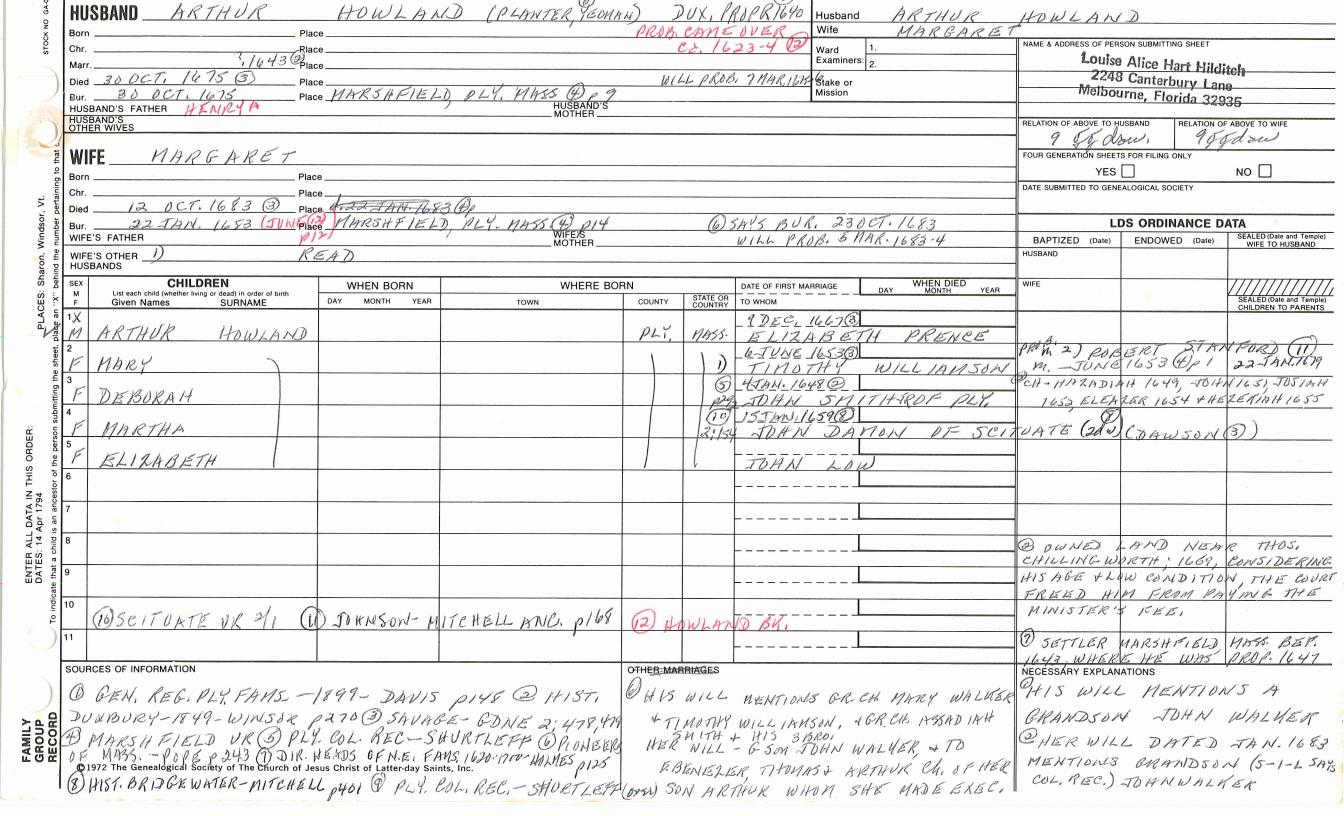 HUSBAND ARTHUR HOWLAND (PLANTER, YEOMAN) DUX. PROPR 1640
Born Place PROB. CAME OVER
Chr. Place CA. 1623-4 (12)
Marr. ?, 1643 (2) Place
Died 30 OCT. 1675 (3) Place WILL PROB. 7 MAR. 1675-6
Bur. 30 OCT. 1675 Place MARSHFIELD, PLY. MASS (4) p9
HUSBAND'S FATHER HENRY A HUSBAND'S MOTHER
HUSBAND'S OTHER WIVES
WIFE MARGARET
Born Place
Chr. Place
Died 12 OCT. 1683 (3) Place
Bur. 22 JAN. 1653 (JUNE (12) p12) Place MARSHFIELD, PLY. MASS (4) p14 (6) SAYS BUR. 23 OCT. 1683
WIFE'S FATHER WIFE'S MOTHER WILL PROB. 5 MAR. 1683-4
WIFE'S OTHER HUSBANDS 1) READ
Husband ARTHUR HOWLAND
Wife MARGARET
Ward Examiners: 1. 2.
Stake or Mission
NAME & ADDRESS OF PERSON SUBMITTING SHEET
Louise Alice Hart Hilditch
2248 Canterbury Lane
Melbourne, Florida 32935
RELATION OF ABOVE TO HUSBAND RELATION OF ABOVE TO WIFE
9 ggdau. 9ggdau
FOUR GENERATION SHEETS FOR FILING ONLY
YES NO
DATE SUBMITTED TO GENEALOGICAL SOCIETY
LDS ORDINANCE DATA
BAPTIZED (Date) ENDOWED (Date) SEALED (Date and Temple) WIFE TO HUSBAND
HUSBAND
WIFE
SEALED (Date and Temple) CHILDREN TO PARENTS
SEX M F CHILDREN List each child (whether living or dead) in order of birth Given Names SURNAME
WHEN BORN DAY MONTH YEAR
WHERE BORN TOWN COUNTY STATE OR COUNTRY
DATE OF FIRST MARRIAGE TO WHOM
WHEN DIED DAY MONTH YEAR
1 X M ARTHUR HOWLAND PLY. MASS. 9 DEC. 1667 (3) ELIZABETH PRENCE
2 F MARY 1) 6 JUNE 1653 (3) TIMOTHY WILLIAMSON m 2) ROBERT STANFORD (11)
m. - JUNE 1653 (4) p1 22 JAN. 1679
3 F DEBORAH (5) 4 JAN. 1648 (2) JOHN SMITH OF PLY. CH - HAZADIAH 1649, JOHN 1651, JOSIAH
1652, ELEAZER 1654 & HEZEKIAH 1655
4 F MARTHA (10) 15 JAN. 1659 (8) JOHN DAMON OF SCITUATE (2d w) (8) (DAWSON (3))
5 F ELIZABETH JOHN LOW
6
7
8
9
10 (10) SCITUATE VR 2/1 (11) JOHNSON-MITCHELL ANC. p168 (12) HOWLAND BK.
11
(2) OWNED LAND NEAR THOS.
CHILLINGWORTH; 1669, CONSIDERING
HIS AGE & LOW CONDITION, THE COURT
FREED HIM FROM PAYING THE
MINISTER'S FEE.
(7) SETTLER MARSHFIELD MASS. BEF.
1643, WHERE HE WAS PROP. 1647
SOURCES OF INFORMATION
(1) GEN. REG. PLY. FAMS. - 1899 - DAVIS p148 (2) HIST.
DUXBURY - 1849 - WINSOR p270 (3) SAVAGE - GDNE 2:478,479
(4) MARSHFIELD VR (5) PLY. COL. REC - SHURTLEFF (6) PIONEERS
OF MASS. - POPE p243 (7) DIR. HEADS OF N.E. FAMS. 1620-1700 - HOLMES p125
©1972 The Genealogical Society of The Church of Jesus Christ of Latter-day Saints, Inc.
(8) HIST. BRIDGEWATER - MITCHELL p401 (9) PLY. COL. REC. - SHURTLEFF (over)
OTHER MARRIAGES
HIS WILL MENTIONS GR. CH. MARY WALKER
& TIMOTHY WILLIAMSON, & GR. CH. ASSADIAH
SMITH & HIS 3 BRO.
HER WILL - G-SON JOHN WALKER, & TO
EBENEZER, THOMAS & ARTHUR CH. OF HER
SON ARTHUR WHOM SHE MADE EXEC.
NECESSARY EXPLANATIONS
HIS WILL MENTIONS A
GRANDSON JOHN WALKER
(2) HER WILL DATED JAN. 1683
MENTIONS GRANDSON (5-1-L SAYS
COL. REC.) JOHN WALKER
ENTER ALL DATA IN THIS ORDER:
DATES: 14 Apr 1794
PLACES: Sharon, Windsor, Vt.
FAMILY GROUP RECORD